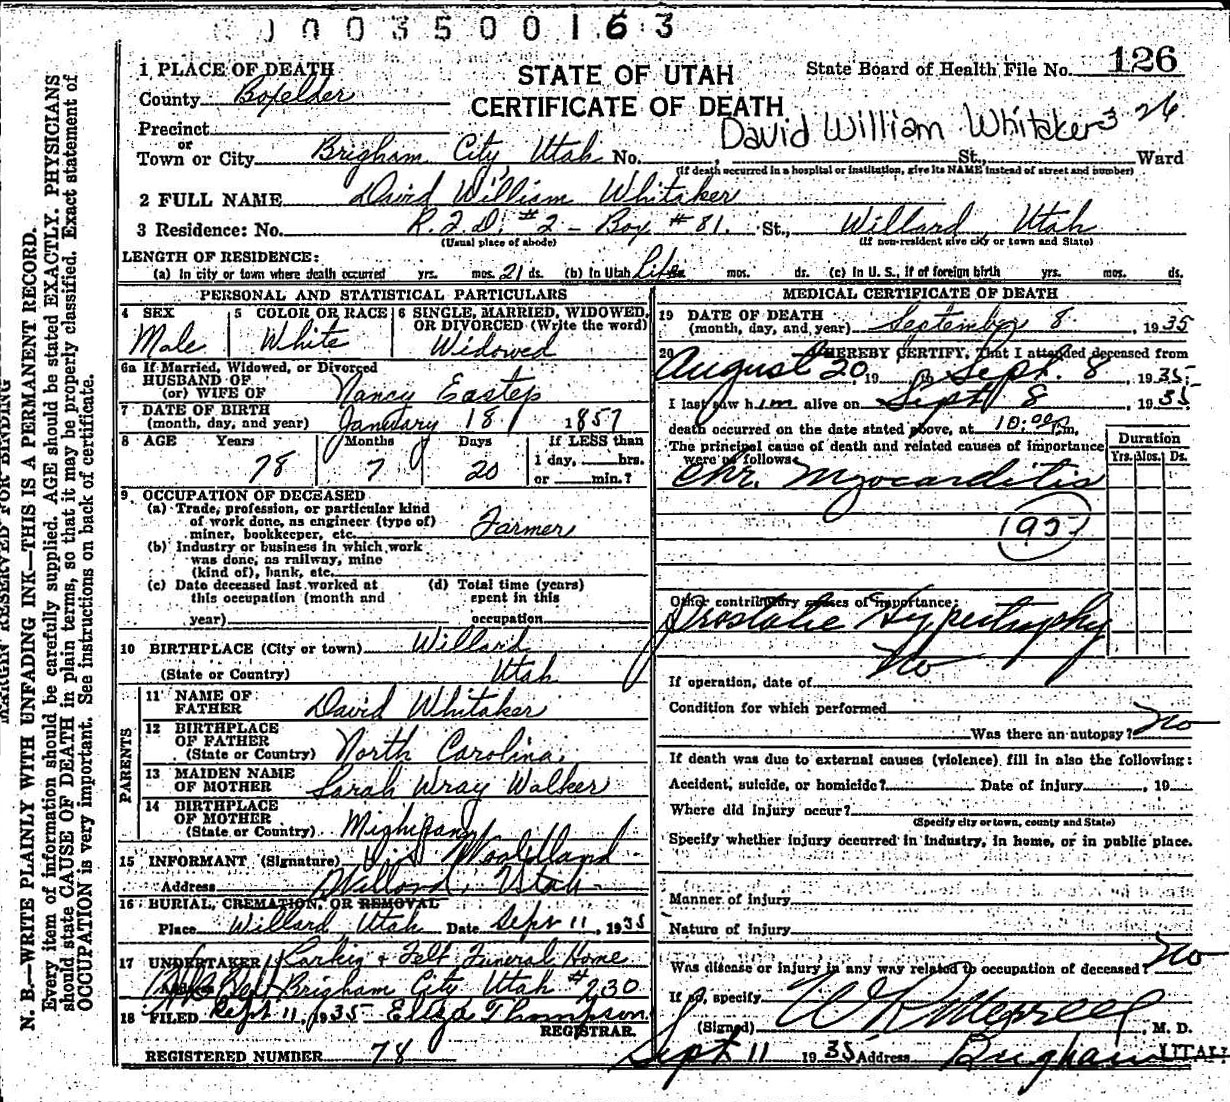 003500163
126
1 PLACE OF DEATH
STATE OF UTAH
State Board of Health File No.
County Boxelder
CERTIFICATE OF DEATH
Precinct
David William Whitaker 326
or
Town or City Brigham City, Utah No. St., Ward
(If death occurred in a hospital or institution, give its NAME instead of street and number)
2 FULL NAME David William Whitaker
3 Residence: No. R.F.D. #2 - Box #81. St., Willard, Utah
(Usual place of abode) (If non-resident give city or town and State)
LENGTH OF RESIDENCE:
(a) In city or town where death occurred yrs. mos. 21 ds. (b) In Utah Life mos. ds. (c) In U. S., if of foreign birth yrs. mos. ds.
PERSONAL AND STATISTICAL PARTICULARS
4 SEX Male
5 COLOR OR RACE White
6 SINGLE, MARRIED, WIDOWED, OR DIVORCED (Write the word) Widowed
6a If Married, Widowed, or Divorced
HUSBAND OF
(or) WIFE OF Nancy Eastep
7 DATE OF BIRTH
(month, day, and year) January 18 1857
8 AGE Years Months Days If LESS than
78 7 20 1 day, hrs.
or min.?
9 OCCUPATION OF DECEASED
(a) Trade, profession, or particular kind
of work done, as engineer (type of)
miner, bookkeeper, etc. Farmer
(b) Industry or business in which work
was done, as railway, mine
(kind of), bank, etc.
(c) Date deceased last worked at
this occupation (month and
year)
(d) Total time (years)
spent in this
occupation
10 BIRTHPLACE (City or town) Willard
(State or Country) Utah
PARENTS
11 NAME OF
FATHER David Whitaker
12 BIRTHPLACE
OF FATHER
(State or Country) North Carolina.
13 MAIDEN NAME
OF MOTHER Sarah Wray Walker
14 BIRTHPLACE
OF MOTHER
(State or Country) Mighigan
15 INFORMANT (Signature) Woodland
Address Willard, Utah
16 BURIAL, CREMATION, OR REMOVAL
Place Willard Utah Date Sept 11, 1935
17 UNDERTAKER Larkin & Felt Funeral Home
Brigham City Utah #230
18 FILED Sept 11, 1935 Eliza Thompson
REGISTRAR.
REGISTERED NUMBER 78
MEDICAL CERTIFICATE OF DEATH
19 DATE OF DEATH
(month, day, and year) September 8, 1935
20 I HEREBY CERTIFY, That I attended deceased from
August 20, 19 to Sept. 8, 1935;
I last saw him alive on Sept 8, 1935
death occurred on the date stated above, at 10:00 P.m.
The principal cause of death and related causes of importance
were as follows:
Duration
Yrs. Mos. Ds.
Chr. Myocarditis
Other contributory causes of importance:
Prostatic Hypertrophy
No
If operation, date of
Condition for which performed
Was there an autopsy? No
If death was due to external causes (violence) fill in also the following:
Accident, suicide, or homicide? Date of injury , 19
Where did injury occur?
(Specify city or town, county and State)
Specify whether injury occurred in industry, in home, or in public place.
Manner of injury
Nature of injury
Was disease or injury in any way related to occupation of deceased? No
If so, specify
(Signed) W R Merrell, M. D.
Sept 11 1935 Address Brigham UTAH
N. B.—WRITE PLAINLY WITH UNFADING INK—THIS IS A PERMANENT RECORD.
Every item of information should be carefully supplied. AGE should be stated EXACTLY. PHYSICIANS
should state CAUSE OF DEATH in plain terms, so that it may be properly classified. Exact statement of
OCCUPATION is very important. See instructions on back of certificate.